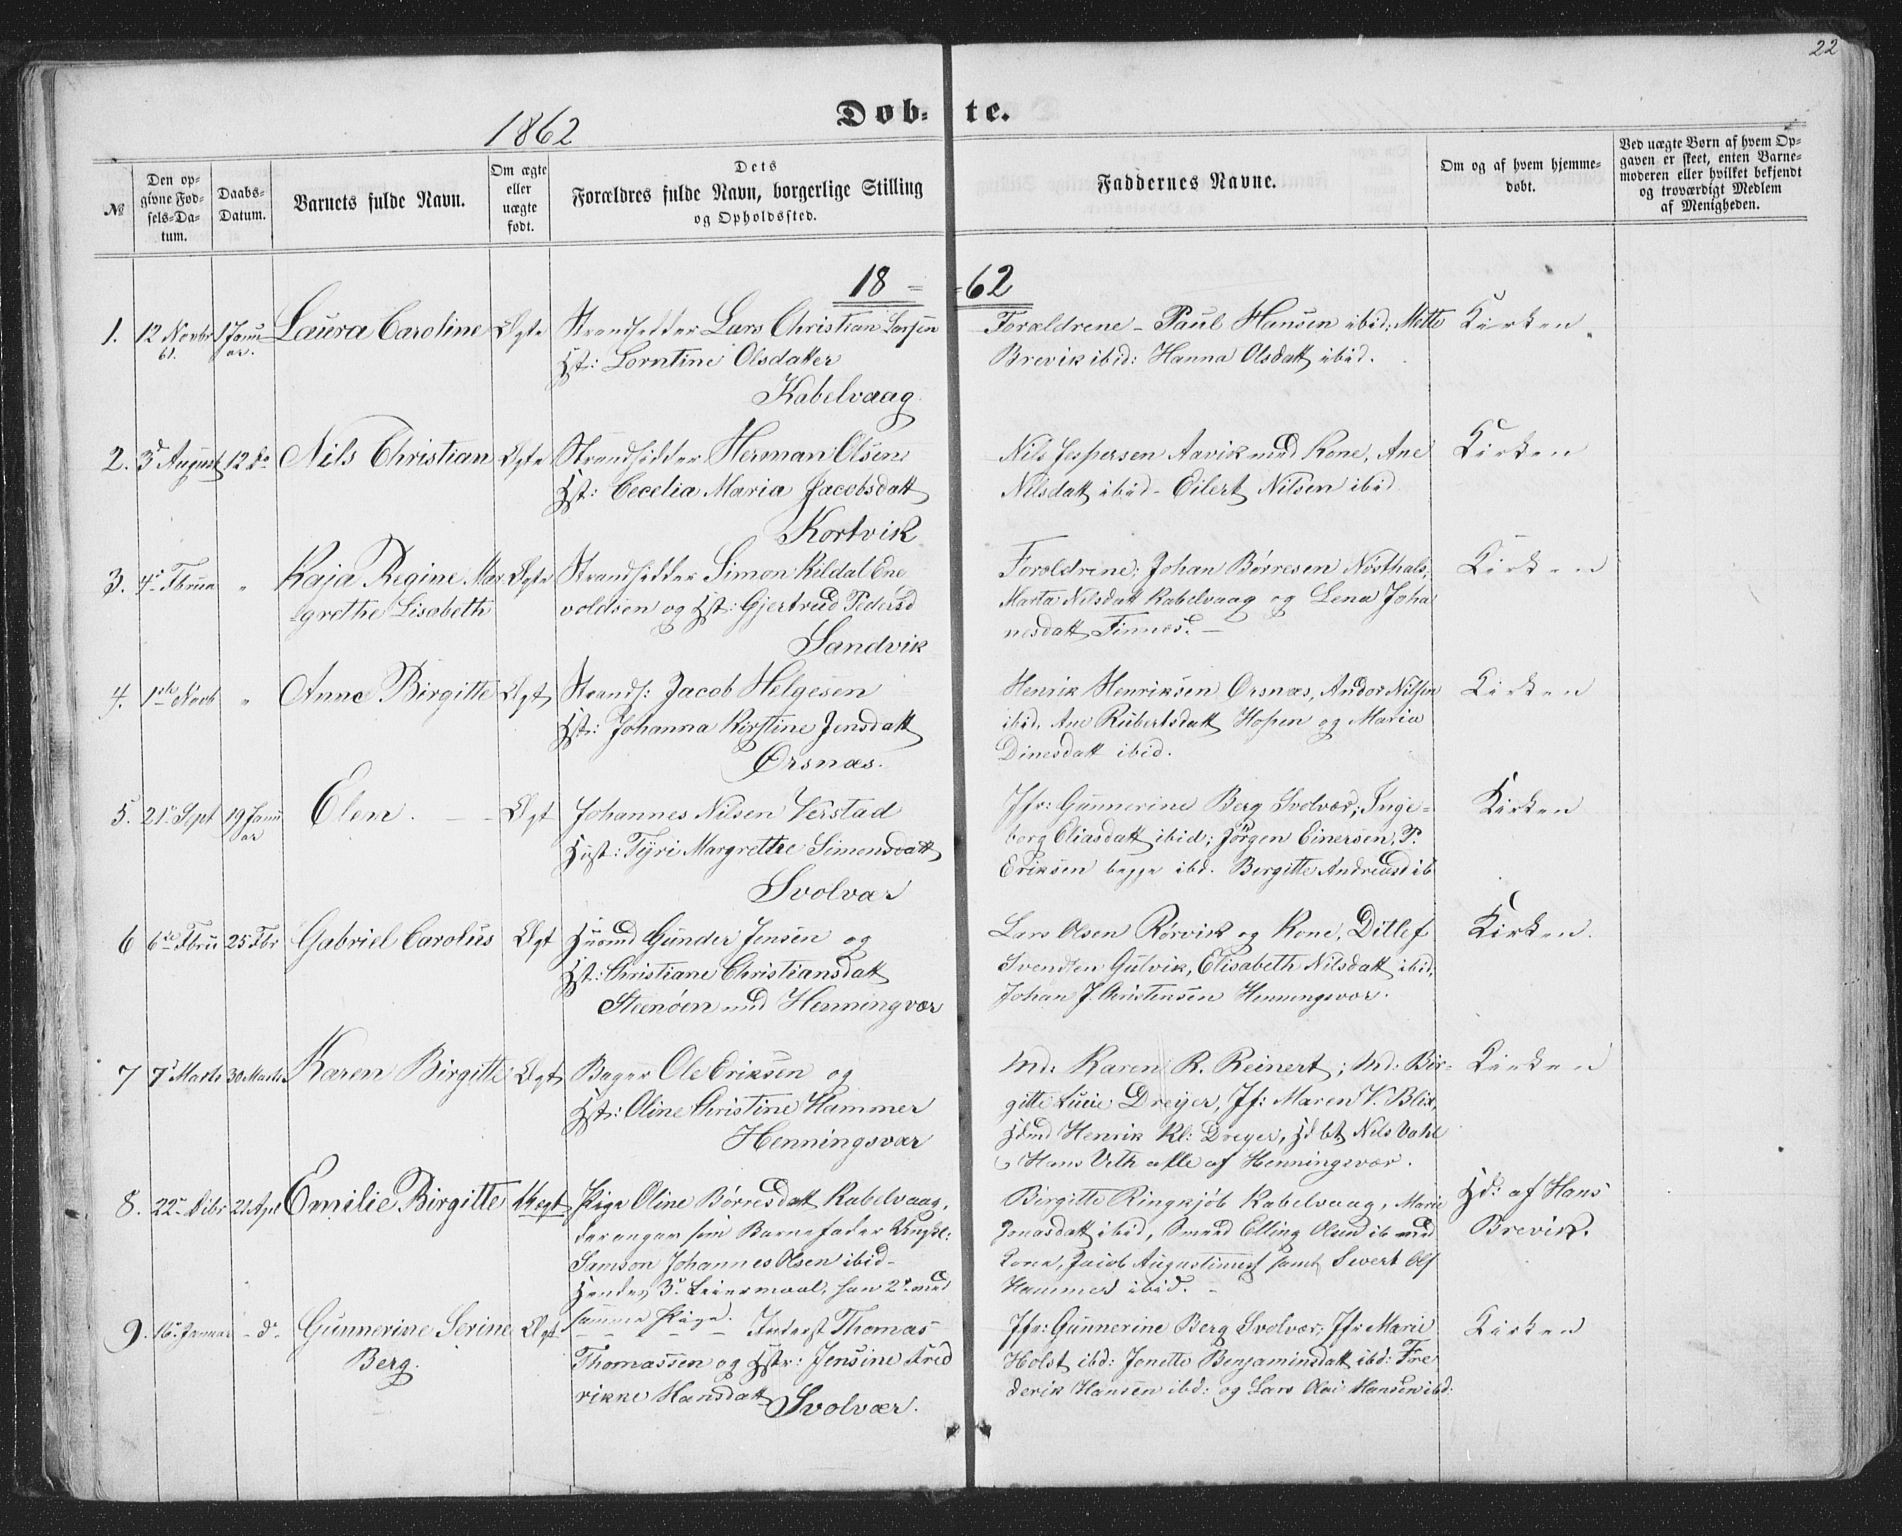 22
1862
Døb- te.
№
Den opgivne Fødsels-Datum.
Daabs-Datum.
Barnets fulde Navn.
Om ægte eller uægte født.
Dets Forældres fulde Navn, borgerlige Stilling og Opholdssted.
Faddernes Navne.
Om og af hvem hjemmedøbt.
Ved uægte Børn af hvem Opgaven er skeet, enten Barnemoderen eller hvilket bekjendt og troværdigt Medlem af Menigheden.
18 = =62
1. 12 Novbr 61. 1 Januar. Laura Caroline Ægte
Strandsidder Lars Christian Larsen
Hst: Lorntine Olsdatter
Kabelvaag
Forældrene - Paul Hansen ibid; Mette
Brevik ibid: Hanna Olsdatt ibid.
Kirken
2. 3d August 12 do Nils Christian Ægte
Strandsidder Herman Olsen
Hst: Cecelia Maria Jacobsdatt
Kortvik
Nils Jespersen Aavik med Kone, Ane
Nilsdatt ibid - Eilert Nilsen ibid
Kirken
3. 4de Fbrua " Kaja Regine Mar
grethe Lisabeth Ægte
Strandsidder Simon Kildal Ene
voldsen og Hst: Gjertrud Pedersd
Sandvik
Forældrene; Johan Børresen
Marta Nilsdatt Kabelvaag og Lena Joha
nesdatt Finnes. -
Kirken
4. " Anne Birgitte Ægt
Strands: Jacob Helgesen
Hst: Johanna Kirstine Jensdatt
Ørsnæs.
Henrik Henriksen Ørsnæs, Andor Nilsen
ibid, Ane Rubertsdatt Hopen og Maria
Dinesdatt ibid.
Kirken
5. 21 Sept 19 Januar Elen. - - Ægt
Johannes Nilsen Verstad
Hust: Tyri Margrethe Simonsdatt
Svolvær
Jfr: Gunnerine Berg Svolvær; Inge-
borg Eliasdatt ibid; Jørgen Einersen, P.
Eriksen begge ibd. Bergitte Andreasd ib
Kirken
6 6te Fbru 25 Fbr Gabriel Carolus Ægt
Husmd Gunder Jensen og
Hst: Christiane Christiansdatt
Steenøen ved Henningvær
Lars Olsen Rørvik og Kone, Ditlef
Svendsen Gulvik, Elisabeth Nilsdatt ibid,
Johan J. Christensen Henningsvær.
Kirken.
7 7 Marts 30 Marts Karen Birgitte Ægt
Bager Ole Eriksen og
Hst: Oline Christine Hammer
Henningsvær
Md: Karen R. Reinert; Md: Bir-
gitte Lucie Dreyer, Jf: Maren V. Blix,
Hdmd Henrik Kl: Dreyer, Nils Dahl
Hans Veth alle af Henningsvær.
Kirken
8. 22 Debr 21 Apr Emilie Birgitte Uægt
Pige Oline Børresdatt Kabelvaag,
der angav som Barnefader Ungkl:
Samson Johannes Olsen ibid -
Hendes 3de Leiermaal, han 2det med
samme Pige.
Birgitte Ringkjøb Kabelvaag, Marie
Jonasdatt ibid, Elling Olsen ib med
Kone, Jacob Augustinus samt Sivert Ols
Hammer ibid. -
Hd: af Hans
Brevik.
9. 16 Januar - do - Gunnerine Serine
Berg. Ægt
Inderst Thomas
Thomassen og Hstr: Jensine Fred
rikke Hansdatt
Svolvær.
Jfr: Gunnerine Berg Svolvær; Jfr Marie
Holst ibd: Jonette Benjaminsdatt ibd: Fre
derik Hansen ibd: og Lars Olai Hansen ibd:
Kirken